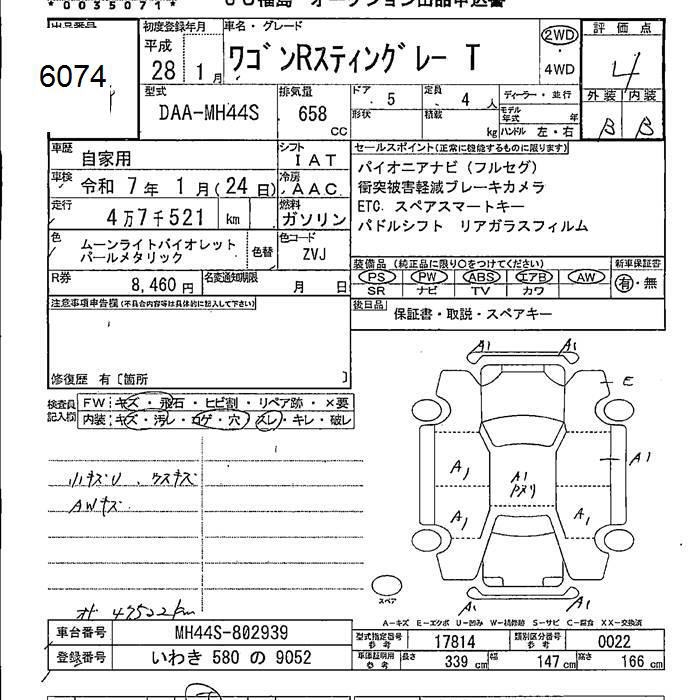 *0035071*
6074
初度登録年月
平成
28 1月
車名・グレード
ワゴンRスティングレー T
2WD
4WD
評価点
4
外装 内装
B B
型式
DAA-MH44S
排気量
658
CC
ドア
5
形状
定員
4 人
積載
kg
ディーラー・並行
モデル年式 年
ハンドル 左・右
車歴
自家用
シフト
IAT
車検
令和 7年 1月(24日)
冷房
AAC
走行
4万7千521 km
燃料
ガソリン
色
ムーンライトバイオレット
パールメタリック
色替
色コード
ZVJ
R券
8,460円
名変通知期限
月 日
セールスポイント(正常に機能するものに限ります)
パイオニアナビ(フルセグ)
衝突被害軽減ブレーキカメラ
ETC. スペアスマートキー
パドルシフト リアガラスフィルム
装備品(純正品に限り○をつけてください)
新車保証書
PS PW ABS エアB AW
SR ナビ TV カワ
有・無
後日品
保証書・取説・スペアキー
注意事項申告欄(不具合内容等は具体的に記入して下さい)
修復歴 有〔箇所 〕
検査員記入欄
FW キズ・飛石・ヒビ割・リペア跡・×要
内装 キズ・汚レ・コゲ・穴・スレ・キレ・破レ
小キズU、ウスキズ
AWキズ
47522km
A1 A1
E
A1
A1
A1
A1
A1
A1 A1
スペア
A-キズ E-エクボ U-凹み W-補修跡 S-サビ C-腐食 XX-交換済
車台番号
MH44S-802939
登録番号
いわき 580 の 9052
型式指定番号
参考
17814
類別区分番号
参考
0022
車体証明用
参考
長さ
339 cm
幅
147 cm
高さ
166 cm